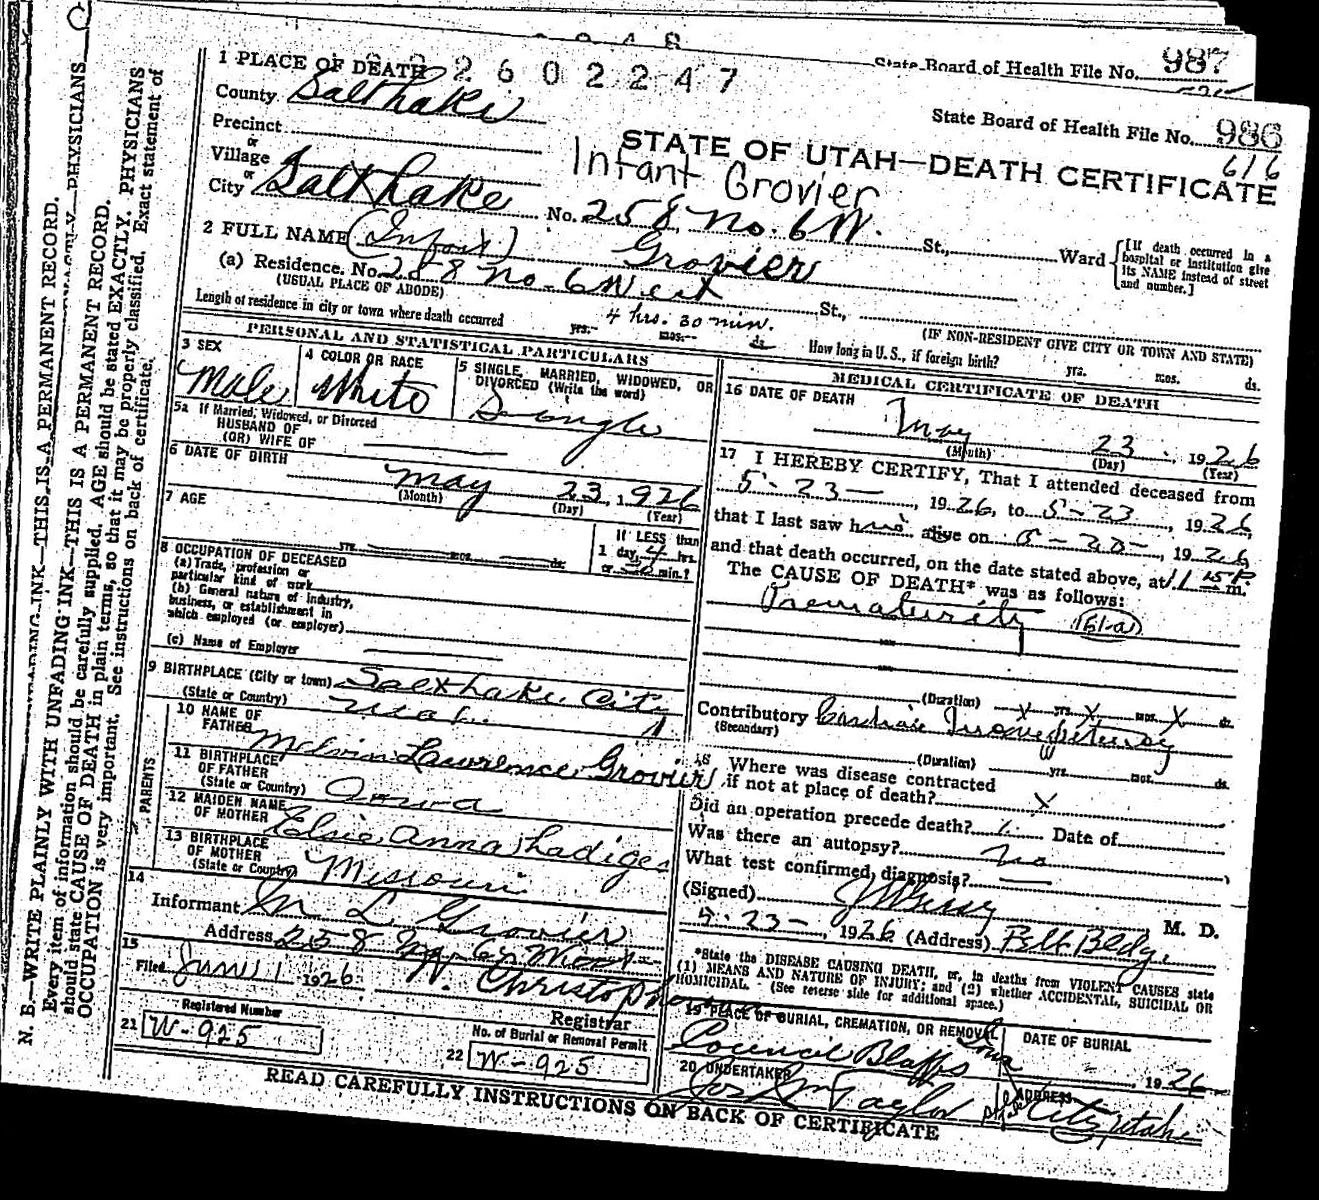 987
State Board of Health File No.
2602247
State Board of Health File No. 986
616
1 PLACE OF DEATH
STATE OF UTAH—DEATH CERTIFICATE
County Salt Lake
Infant Grovier
Precinct
or
Village
or
City Salt Lake No. 258 No. 6 W. St., Ward
[If death occurred in a hospital or institution give its NAME instead of street and number.]
2 FULL NAME (Infant) Grovier
(a) Residence. No. 258 No. 6 West St.,
(USUAL PLACE OF ABODE)
(IF NON-RESIDENT GIVE CITY OR TOWN AND STATE)
Length of residence in city or town where death occurred yrs. mos. ds. 4 hrs. 30 min.
How long in U. S., if foreign birth? yrs. mos. ds.
PERSONAL AND STATISTICAL PARTICULARS
3 SEX
Male
4 COLOR OR RACE
White
5 SINGLE, MARRIED, WIDOWED, OR DIVORCED (Write the word)
Single
5a If Married, Widowed, or Divorced
HUSBAND OF
(OR) WIFE OF
6 DATE OF BIRTH
May 23, 1926
(Month) (Day) (Year)
7 AGE
yrs. mos. ds.
If LESS than
1 day, 4 hrs.
or 30 min.?
8 OCCUPATION OF DECEASED
(a) Trade, profession or
particular kind of work
(b) General nature of industry,
business, or establishment in
which employed (or employer)
(c) Name of Employer
9 BIRTHPLACE (City or town) Salt Lake City
(State or Country) Utah
PARENTS
10 NAME OF
FATHER Melvin Lawrence Grovier
11 BIRTHPLACE
OF FATHER
(State or Country) Iowa
12 MAIDEN NAME
OF MOTHER Elsie Anna Ladiges
13 BIRTHPLACE
OF MOTHER
(State or Country) Missouri
14
Informant M L Grovier
Address 258 No. 6 West
15
Filed June 1 1926 W. Christopherson
Registrar
Registered Number
21 W-925
No. of Burial or Removal Permit
22 W-925
MEDICAL CERTIFICATE OF DEATH
16 DATE OF DEATH
May 23, 1926
(Month) (Day) (Year)
17 I HEREBY CERTIFY, That I attended deceased from
5-23-, 1926, to 5-23, 1926,
that I last saw him alive on 5-23-, 1926,
and that death occurred, on the date stated above, at 11 15 P m.
The CAUSE OF DEATH* was as follows:
Prematurity (161-a)
(Duration) X yrs. X mos. X ds.
Contributory Cardiac Incompetency
(Secondary)
(Duration) yrs. mos. ds.
18 Where was disease contracted
if not at place of death? X
Did an operation precede death? Date of
Was there an autopsy? No
What test confirmed diagnosis?
(Signed) M. D.
5-23-, 1926 (Address) Felt Bldg.
*State the DISEASE CAUSING DEATH, or, in deaths from VIOLENT CAUSES state
(1) MEANS AND NATURE OF INJURY; and (2) whether ACCIDENTAL, SUICIDAL OR
HOMICIDAL. (See reverse side for additional space.)
19 PLACE OF BURIAL, CREMATION, OR REMOVAL
Council Bluffs Iowa
DATE OF BURIAL
, 1926
20 UNDERTAKER
Jos Wm Taylor
ADDRESS
City, Utah
READ CAREFULLY INSTRUCTIONS ON BACK OF CERTIFICATE
N. B.—WRITE PLAINLY WITH UNFADING INK—THIS IS A PERMANENT RECORD.
Every item of information should be carefully supplied. AGE should be stated EXACTLY. PHYSICIANS
should state CAUSE OF DEATH in plain terms, so that it may be properly classified. Exact statement of
OCCUPATION is very important. See instructions on back of certificate.